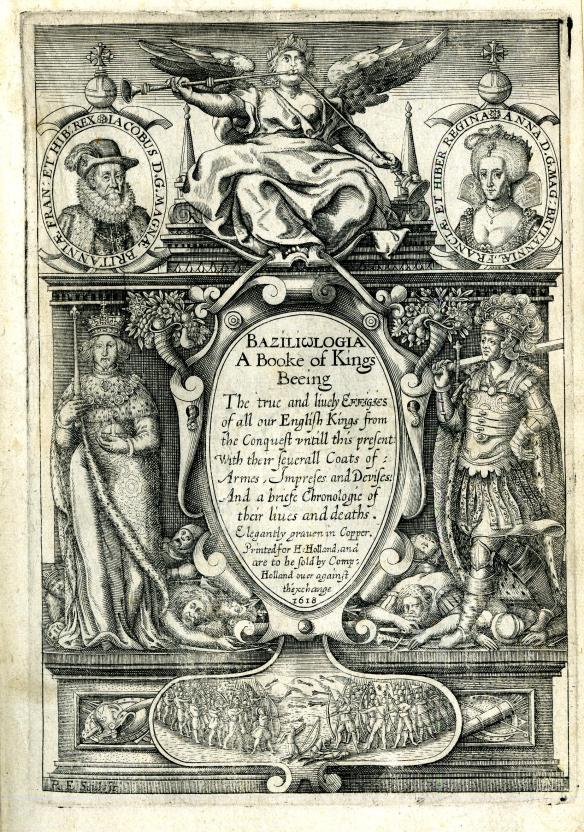 IACOBUS D.G. MAGNÆ BRITANNIÆ FRAN: ET HIB: REX
ANNA D.G. MAG: BRITANNIÆ, FRANCIÆ ET HIBER REGINA
BAZILIωLOGIA
A Booke of Kings
Beeing
The true and liuely Effigies
of all our English Kings from
the Conquest vntill this present:
With their seuerall Coats of
Armes, Impreses and Deuises:
And a briefe Chronologie of
their liues and deaths.
Elegantly grauen in Copper.
Printed for H: Holland, and
are to be sold by Comp:
Holland ouer against
the xchange
1618
R. E. Sculpsit